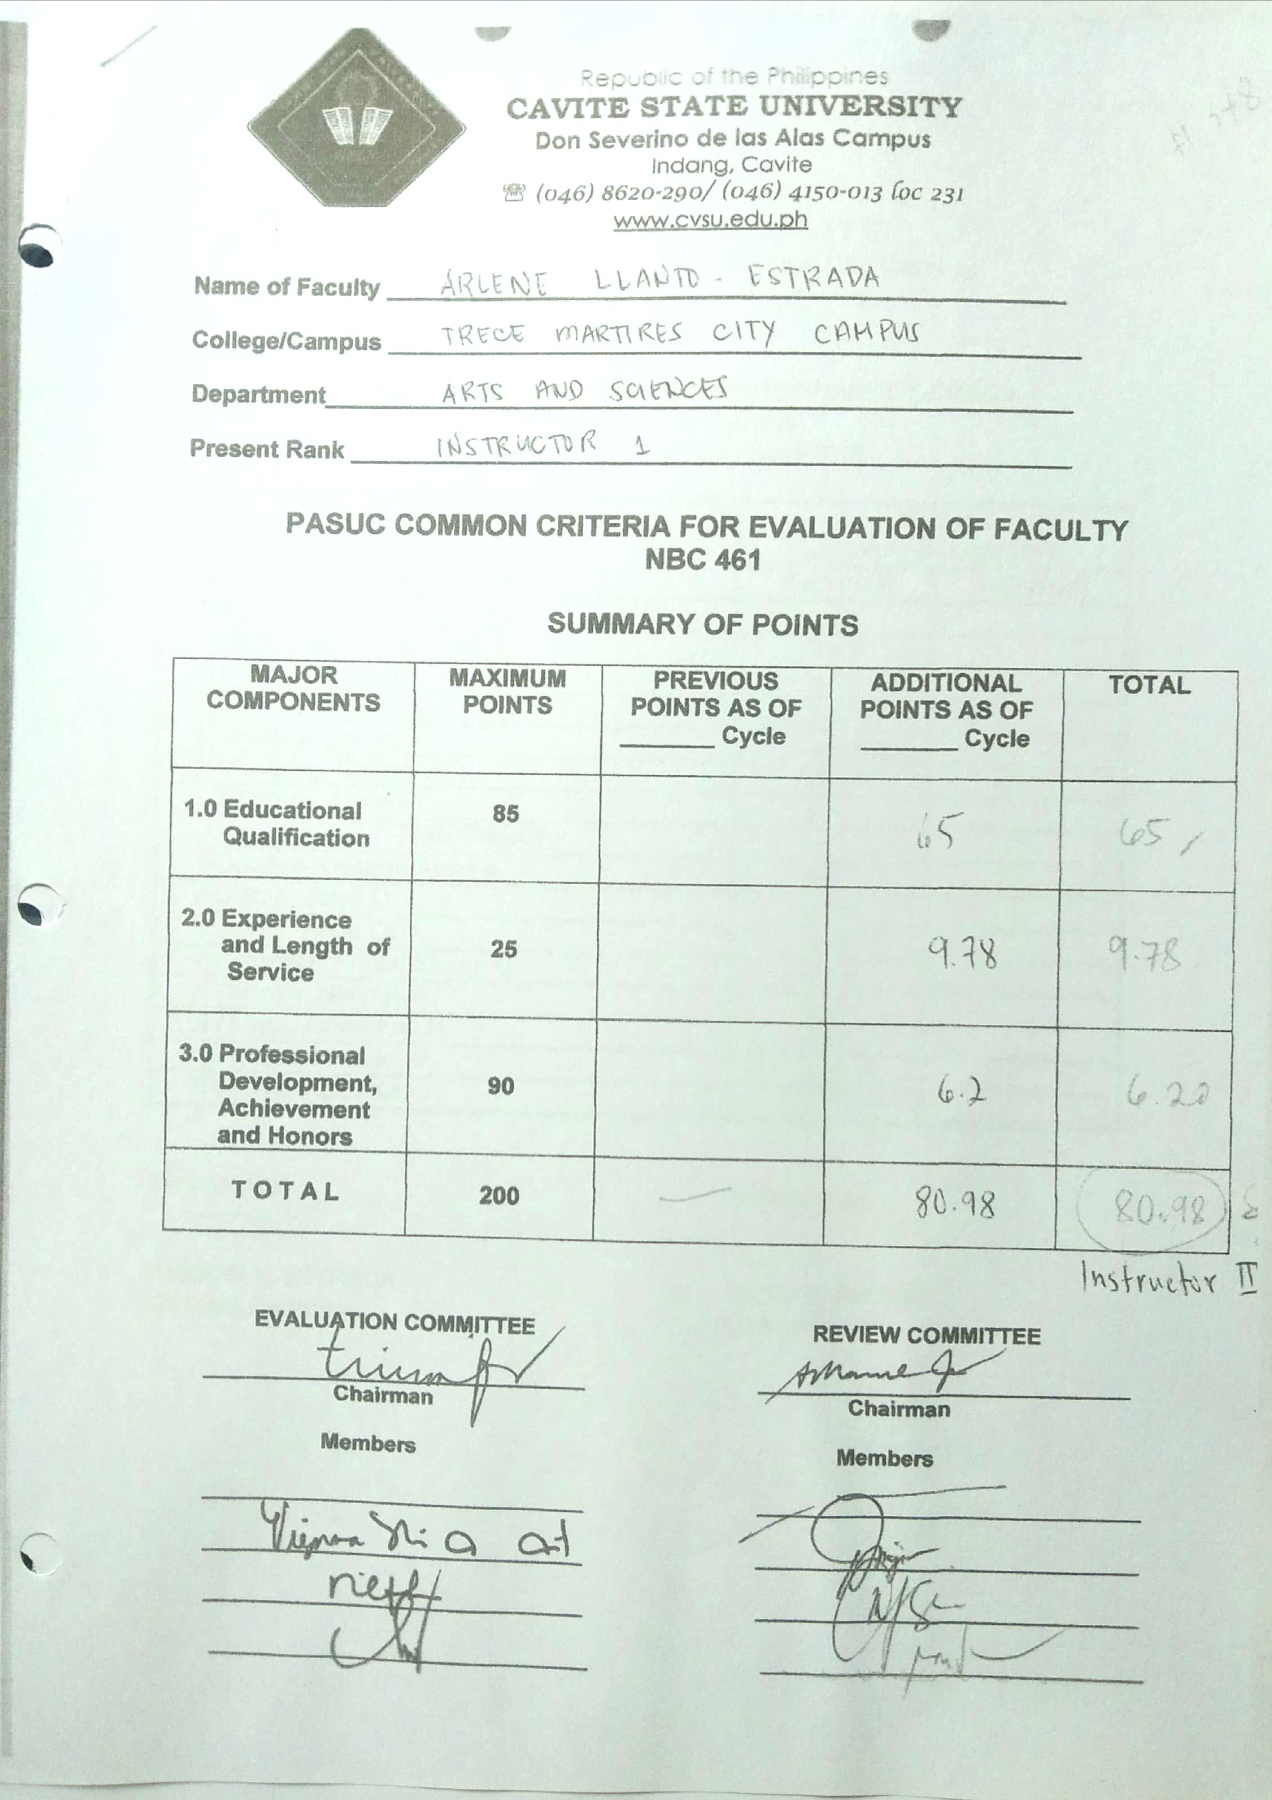 Republic of the Philippines
CAVITE STATE UNIVERSITY
Don Severino de las Alas Campus
Indang, Cavite
☏ (046) 8620-290/ (046) 4150-013 loc 231
www.cvsu.edu.ph
Name of Faculty ARLENE LLANTO - ESTRADA
College/Campus TRECE MARTIRES CITY CAMPUS
Department ARTS AND SCIENCES
Present Rank INSTRUCTOR 1
PASUC COMMON CRITERIA FOR EVALUATION OF FACULTY
NBC 461
SUMMARY OF POINTS
MAJOR COMPONENTS MAXIMUM POINTS PREVIOUS POINTS AS OF ______ Cycle ADDITIONAL POINTS AS OF ______ Cycle TOTAL
1.0 Educational Qualification 85 65 65
2.0 Experience and Length of Service 25 9.78 9.78
3.0 Professional Development, Achievement and Honors 90 6.2 6.20
TOTAL 200 — 80.98 80.98
Instructor II
EVALUATION COMMITTEE
REVIEW COMMITTEE
Chairman
Chairman
Members
Members